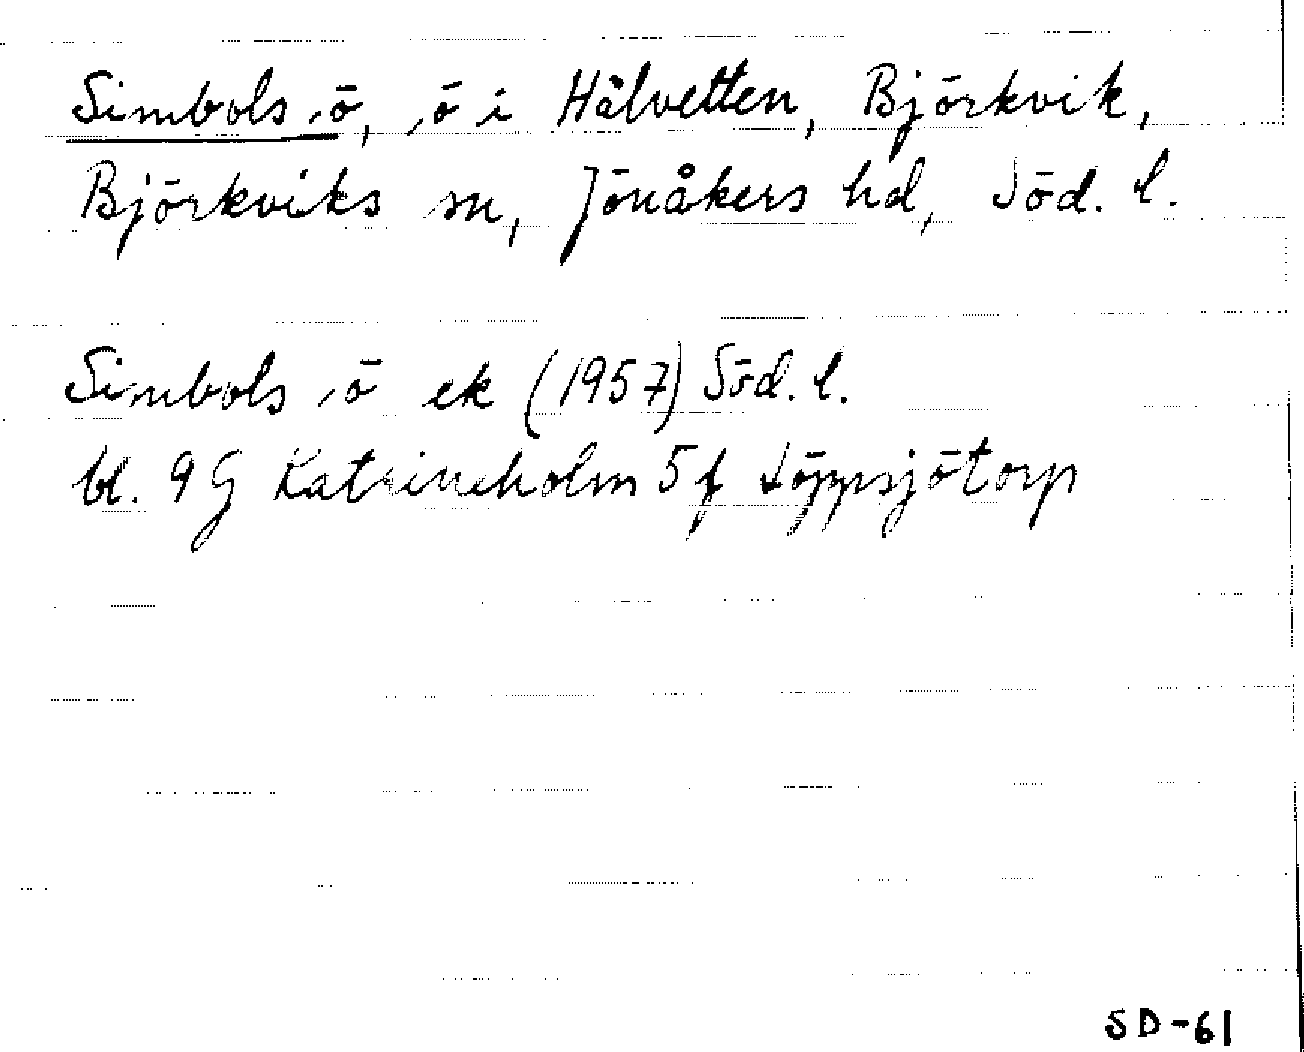 Simbols ö, ö i Hälvetten, Björkvik,
Björkviks sn, Jönåkers hd, Söd. l.
Simbols ö ek (1957) Söd. l.
bl. 9 G Katrineholm 5 f Löppsjötorp
SD-61